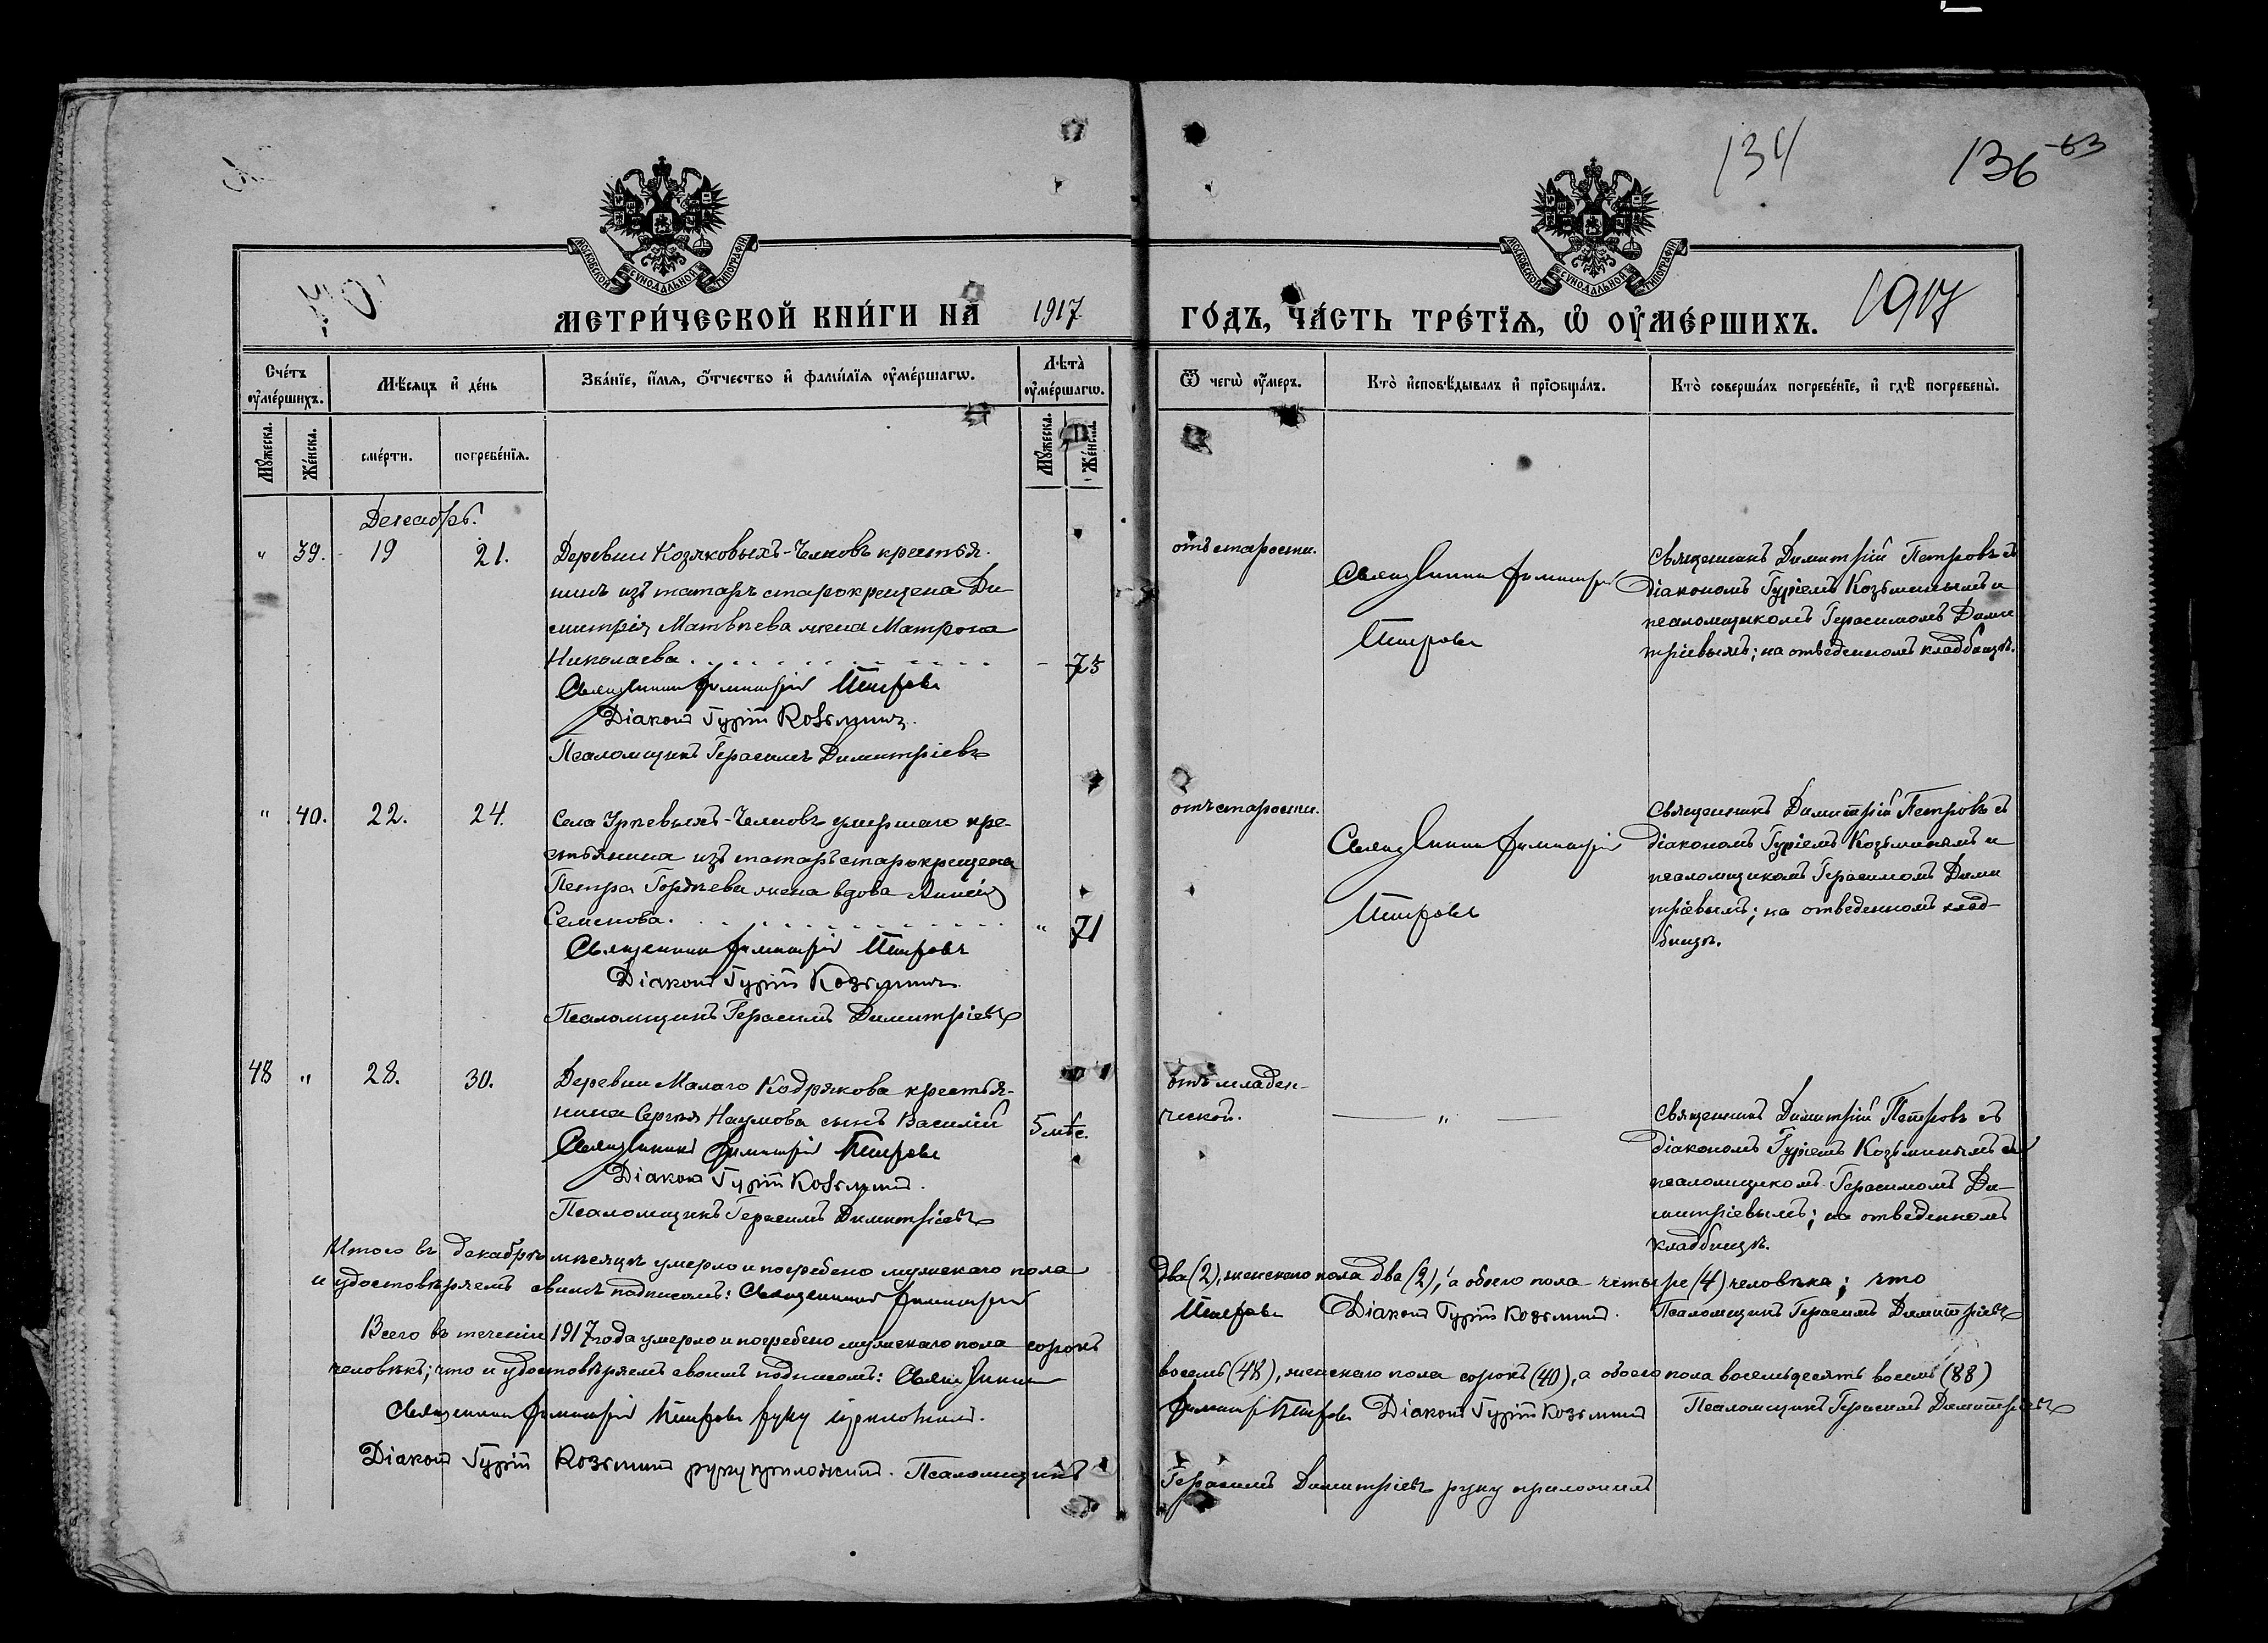 134
136
-63
МОСКОВСКОЙ СѴНОДАЛЬНОЙ ТИПОГРАФІИ
МОСКОВСКОЙ СѴНОДАЛЬНОЙ ТИПОГРАФІИ
МЕТРИ́ЧЕСКОЙ КНИ́ГИ НА 1917
ГО́ДЪ, ЧА́СТЬ ТРЕ́ТЇѦ, Ѡ҆ ОУ҆МЕ́РШИХЪ. 1917
Сче́тъ оу҆ме́ршихъ.
Мѣ́сяцъ и҆ де́нь
Зва́нїе, и҆́мѧ, ѻ҆́тчество и҆ фами́лїѧ оу҆ме́ршагѡ.
Лѣ́та оу҆ме́ршагѡ.
Ѿ чегѡ̀ оу҆́меръ.
Кто̀ и҆сповѣ́дывалъ и҆ прїѡбща́лъ.
Кто̀ соверша́лъ погребе́нїе, и҆ гдѣ̀ погребены̀.
Мꙋ́жеска.
Же́нска.
сме́рти.
погребе́нїѧ.
Мꙋ́жеска.
Же́нска.
Декабрь.
" 39. 19 21. Деревни Козяковыхъ-Челновъ крестья-
нинъ изъ татаръ старокрещена Ди-
митрія Матвѣева жена Матрона
Николаева - 75
Священникъ Димитрій Петровъ
Діаконъ Гурій Козьминъ.
Псаломщикъ Герасимъ Димитріевъ
отъ старости.
Священникъ Димитрій
Петровъ
Священникъ Димитрій Петровъ съ
діакономъ Гуріемъ Козьминымъ и
псаломщикомъ Герасимомъ Дими
тріевымъ; на отведенномъ кладбищѣ.
" 40. 22. 24. Села Урѣевыхъ-Челновъ умершаго кре-
стьянина изъ татаръ старокрещена
Петра Гордѣева жена вдова
Семенова. " 71
Священникъ Димитрій Петровъ
Діаконъ Гурій Козьминъ.
Псаломщикъ Герасимъ Димитріевъ
отъ старости.
Священникъ Димитрій
Петровъ
Священникъ Димитрій Петровъ съ
діакономъ Гуріемъ Козьминымъ и
псаломщикомъ Герасимомъ Дими
тріевымъ; на отведенномъ клад-
бищѣ.
48 " 28. 30. Деревни Малаго Кодрякова крестья-
нина Сергѣя Наумова сынъ Василій 5 мѣс.
Священникъ Димитрій Петровъ
Діаконъ Гурій Козьминъ.
Псаломщикъ Герасимъ Димитріевъ
отъ младен-
ческой.
"
Священникъ Димитрій Петровъ съ
діакономъ Гуріемъ Козьминымъ и
псаломщикомъ Герасимомъ Ди-
митріевымъ; на отведенномъ
кладбищѣ.
Итого въ декабрѣ мѣсяцѣ умерло и погребено мужскаго пола два (2), женскаго пола два (2), а обоего пола четыре (4) человѣка; что
и удостовѣряемъ своимъ подписомъ: Священникъ Димитрій Петровъ Діаконъ Гурій Козьминъ. Псаломщикъ Герасимъ Димитріевъ
Всего въ теченіи 1917 года умерло и погребено мужскаго пола сорокъ восемь (48), женскаго пола сорокъ (40), а обоего пола восемьдесятъ восемь (88)
человѣкъ; что и удостовѣряемъ своимъ подписомъ: Священникъ Димитрій Петровъ Діаконъ Гурій Козьминъ Псаломщикъ Герасимъ Димитріевъ
Священникъ Димитрій Петровъ руку приложилъ.
Діаконъ Гурій Козьминъ руку приложилъ. Псаломщикъ Герасимъ Димитріевъ руку приложилъ